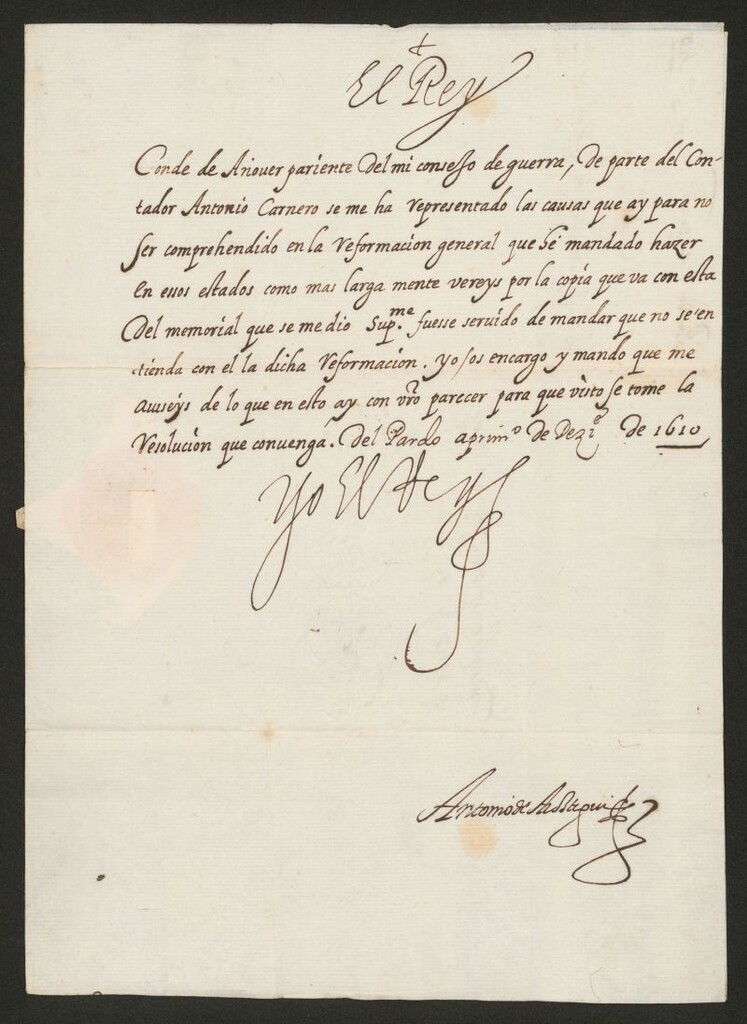 El Rey
Conde de Añouer pariente del mi consejo de guerra, de parte del Con-
tador Antonio Carnero se me ha representado las causas que ay para no
ser comprehendido en la reformacion general que hé mandado hazer
en essos estados como mas larga mente vereys por la copia que va con esta
del memorial que se me dio Sup.me fuesse seruido de mandar que no se en
tienda con el la dicha reformacion. yo os encargo y mando que me
auiseys de lo que en esto ay con vrō parecer para que visto se tome la
resolucion que conuenga. Del Pardo a prim.o de Dez.e de 1610
Yo El Rey
Antonio de